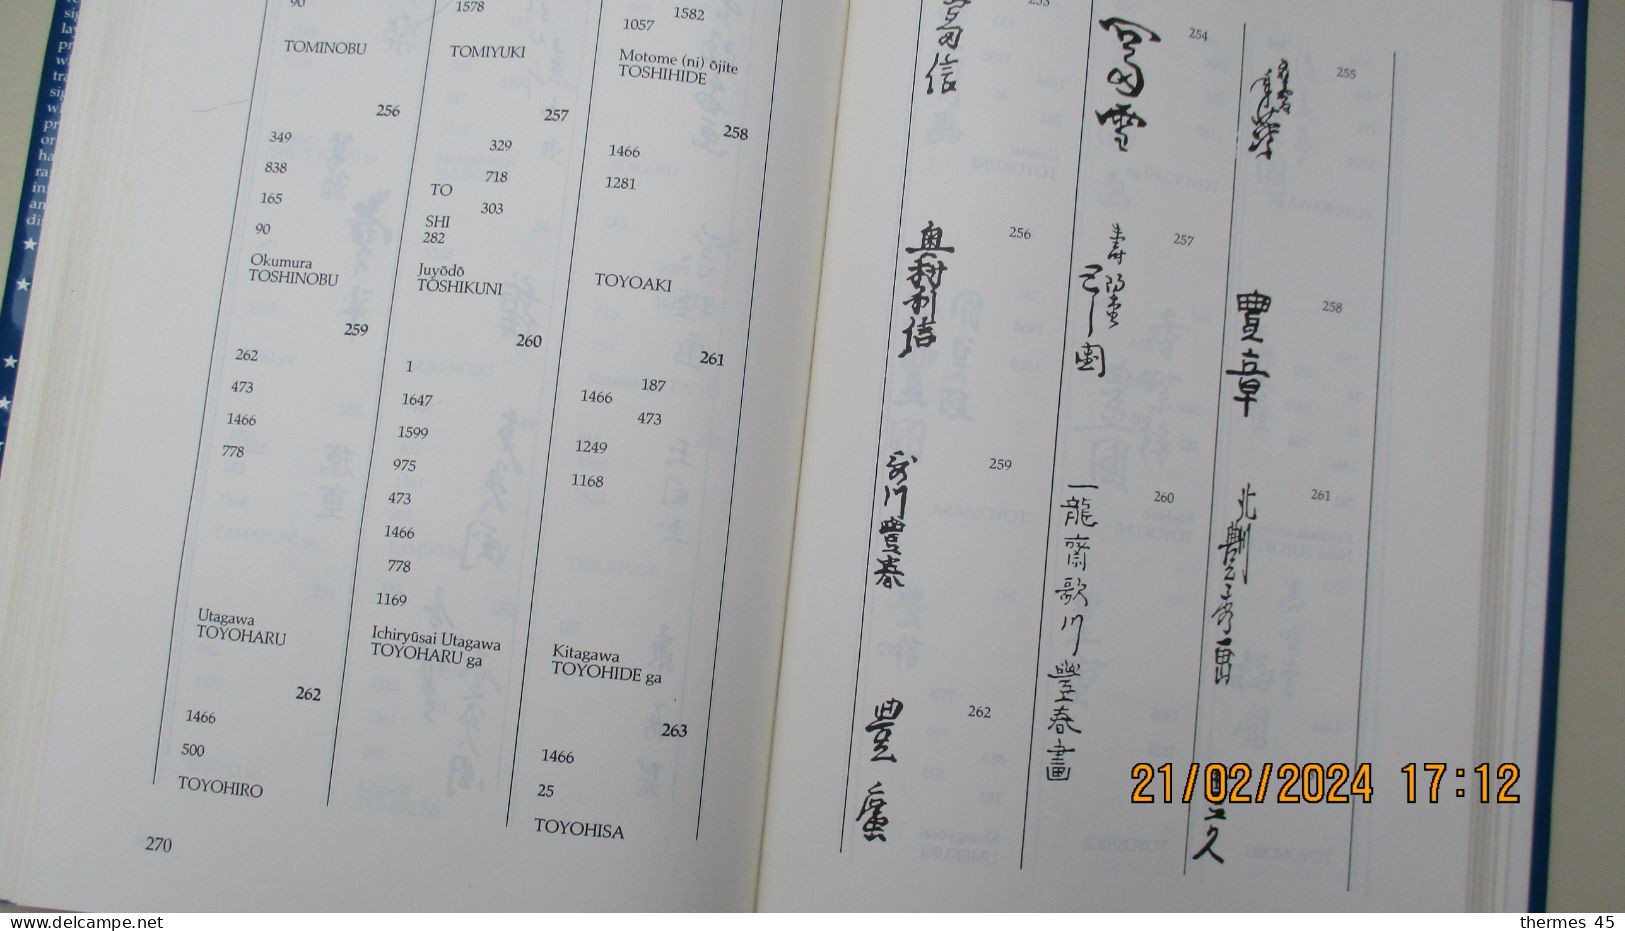 90
TOMINOBU
256
349
838
165
90
Okumura
TOSHINOBU
259
262
473
1466
778
Utagawa
TOYOHARU
262
1466
500
TOYOHIRO
270
1578
TOMIYUKI
257
329
718
TO
303
SHI
282
Juyōdō
TOSHIKUNI
260
1
1647
1599
975
473
1466
778
1169
Ichiryūsai Utagawa
TOYOHARU ga
1582
1057
Motome (ni) ōjite
TOSHIHIDE
258
1466
1281
TOYOAKI
261
187
1466
473
1249
1168
Kitagawa
TOYOHIDE ga
263
1466
25
TOYOHISA
253
富信
254
富雪
255
256
奥村利信
257
258
豊章
259
哥川豊春
260
一龍齋歌川豐春畫
261
262
豊廣
久
21/02/2024 17:12
www.delcampe.net
thermes 45